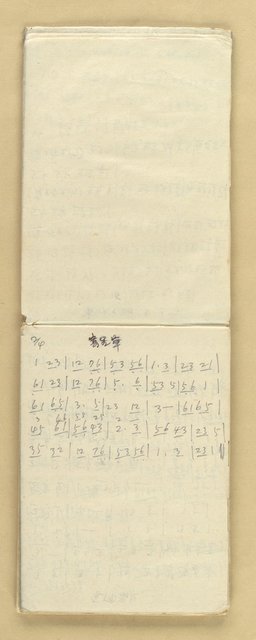 2/4
1 23 | 12 76 | 53 56 | 1·3 | 23 21 |
61 23 | 12 76 | 5· 6 | 53 5 | 56 1 |
61 65 | 3· 5 | 23 12 | 3 — | 61 65 |
45 61 | 56 43 | 2· 3 | 56 43 | 23 5
35 32 | 12 76 | 53 56 | 1· 3 | 23 1 ||